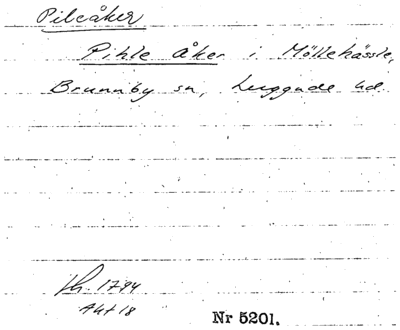 Pileåker
Pihle åker i Möllehässle,
Brunnby sn, Luggude hd.
Lh. 1794
Akt 18
Nr 5201.